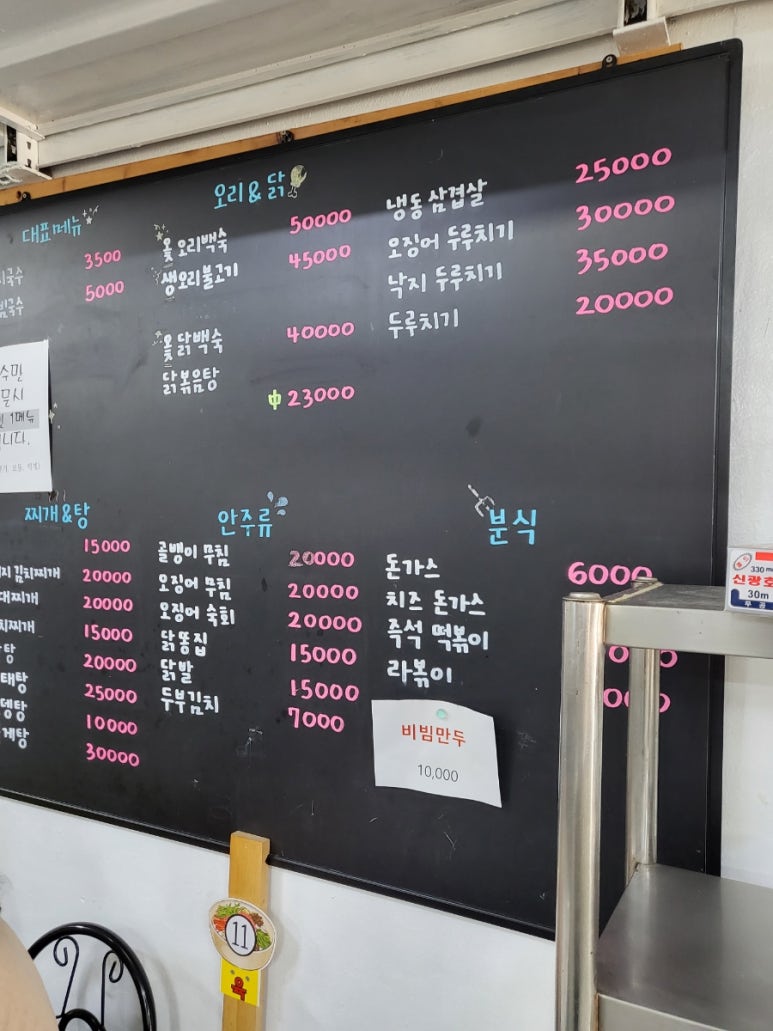 대표메뉴
국수 3500
국수 5000
수만
문시
1메뉴
니다.
오리&닭
옻 오리백숙 50000
생오리불고기 45000
옻 닭백숙 40000
닭볶음탕 中 23000
냉동 삼겹살 25000
오징어 두루치기 30000
낙지 두루치기 35000
두루치기 20000
찌개&탕
15000
지 김치찌개 20000
대찌개 20000
치찌개 15000
탕 20000
태탕 25000
뎅탕 10000
게탕 30000
안주류
골뱅이 무침 20000
오징어 무침 20000
오징어 숙회 20000
닭똥집 15000
닭발 15000
두부김치 7000
분식
돈가스 6000
치즈 돈가스
즉석 떡볶이
라볶이
비빔만두
10,000
11
욕
330
신광호
30m